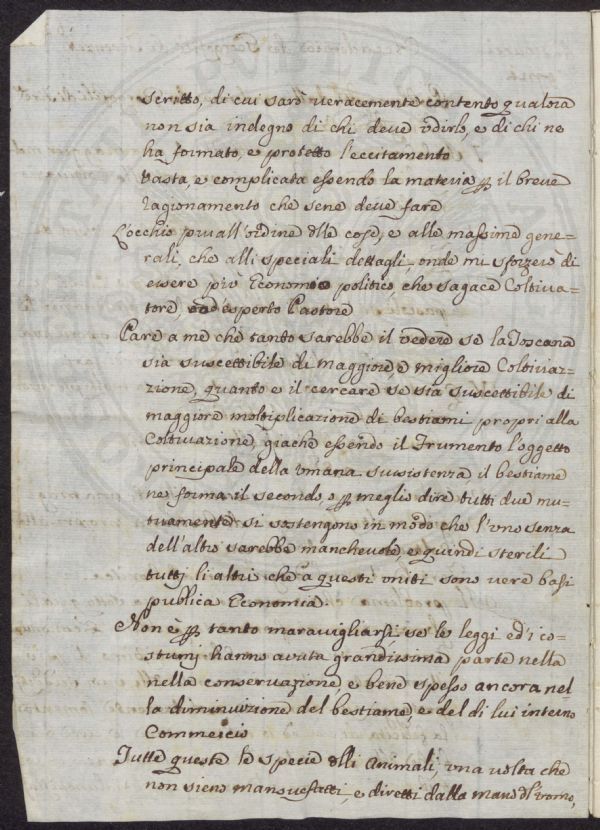 scritto, di cui sarò veracemente contento qualora
non sia indegno di chi deve udirlo, e di chi ne
ha formato, e protetto l'eccitamento
Vasta, e complicata essendo la materia p il breve
ragionamento che sene deve fare
L'occhio piu all'ordine dlle cose, e alle massime gene=
rali, che alli speciali dettagli, onde mi sforzero di
essere più Economico politico, che sagace Coltiva=
tore, ed esperto Pastore
Pare a me che tanto sarebbe il vedere se la Toscana
sia suscettibile di maggiore, e migliore Coltivaz=
zione, quanto e il cercare se sia suscettibile di
maggiore moltiplicazione di bestiami propri alla
Coltivazione, giache essendo il Frumento l'oggetto
principale della umana sussistenza il bestiame
ne forma il secondo, o p meglio dire tutti due mu=
tuamente si sostengono in modo che l'uno senza
dell'altro sarebbe manchevole, e quindi sterili
tuttj li altri che a questi uniti sono vere basi
publica Economia
Non è p tanto maravigliarsi, se le leggi ed'i co=
stumj hanno avuta grandissima parte nella
nella conservazione e bene spesso ancora nel
la diminuizione del bestiame, e del di lui interno
Commercio
Tutte queste le specie dlli Animali, una volta che
non sieno mansuefatti, e diretti dalla mano dl'uomo,